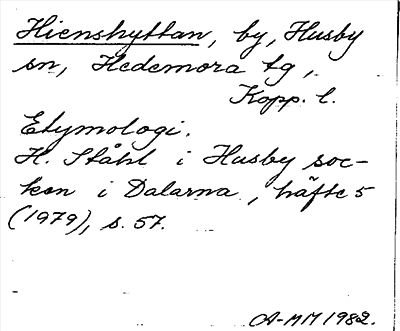 Hienshyttan, by, Husby
sn, Hedemora tg,
Kopp. l.
Etymologi.
H. Ståhl i Husby soc-
ken i Dalarna, häfte 5
(1979), s. 57.
A-MM 1982.